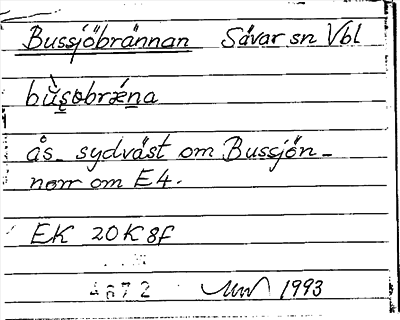 Bussjöbrännan Sävar sn Vbl
bùs̩obrǽn̩a
ås sydväst om Bussjön
norr om E4.
EK 20K8f
4872 1993